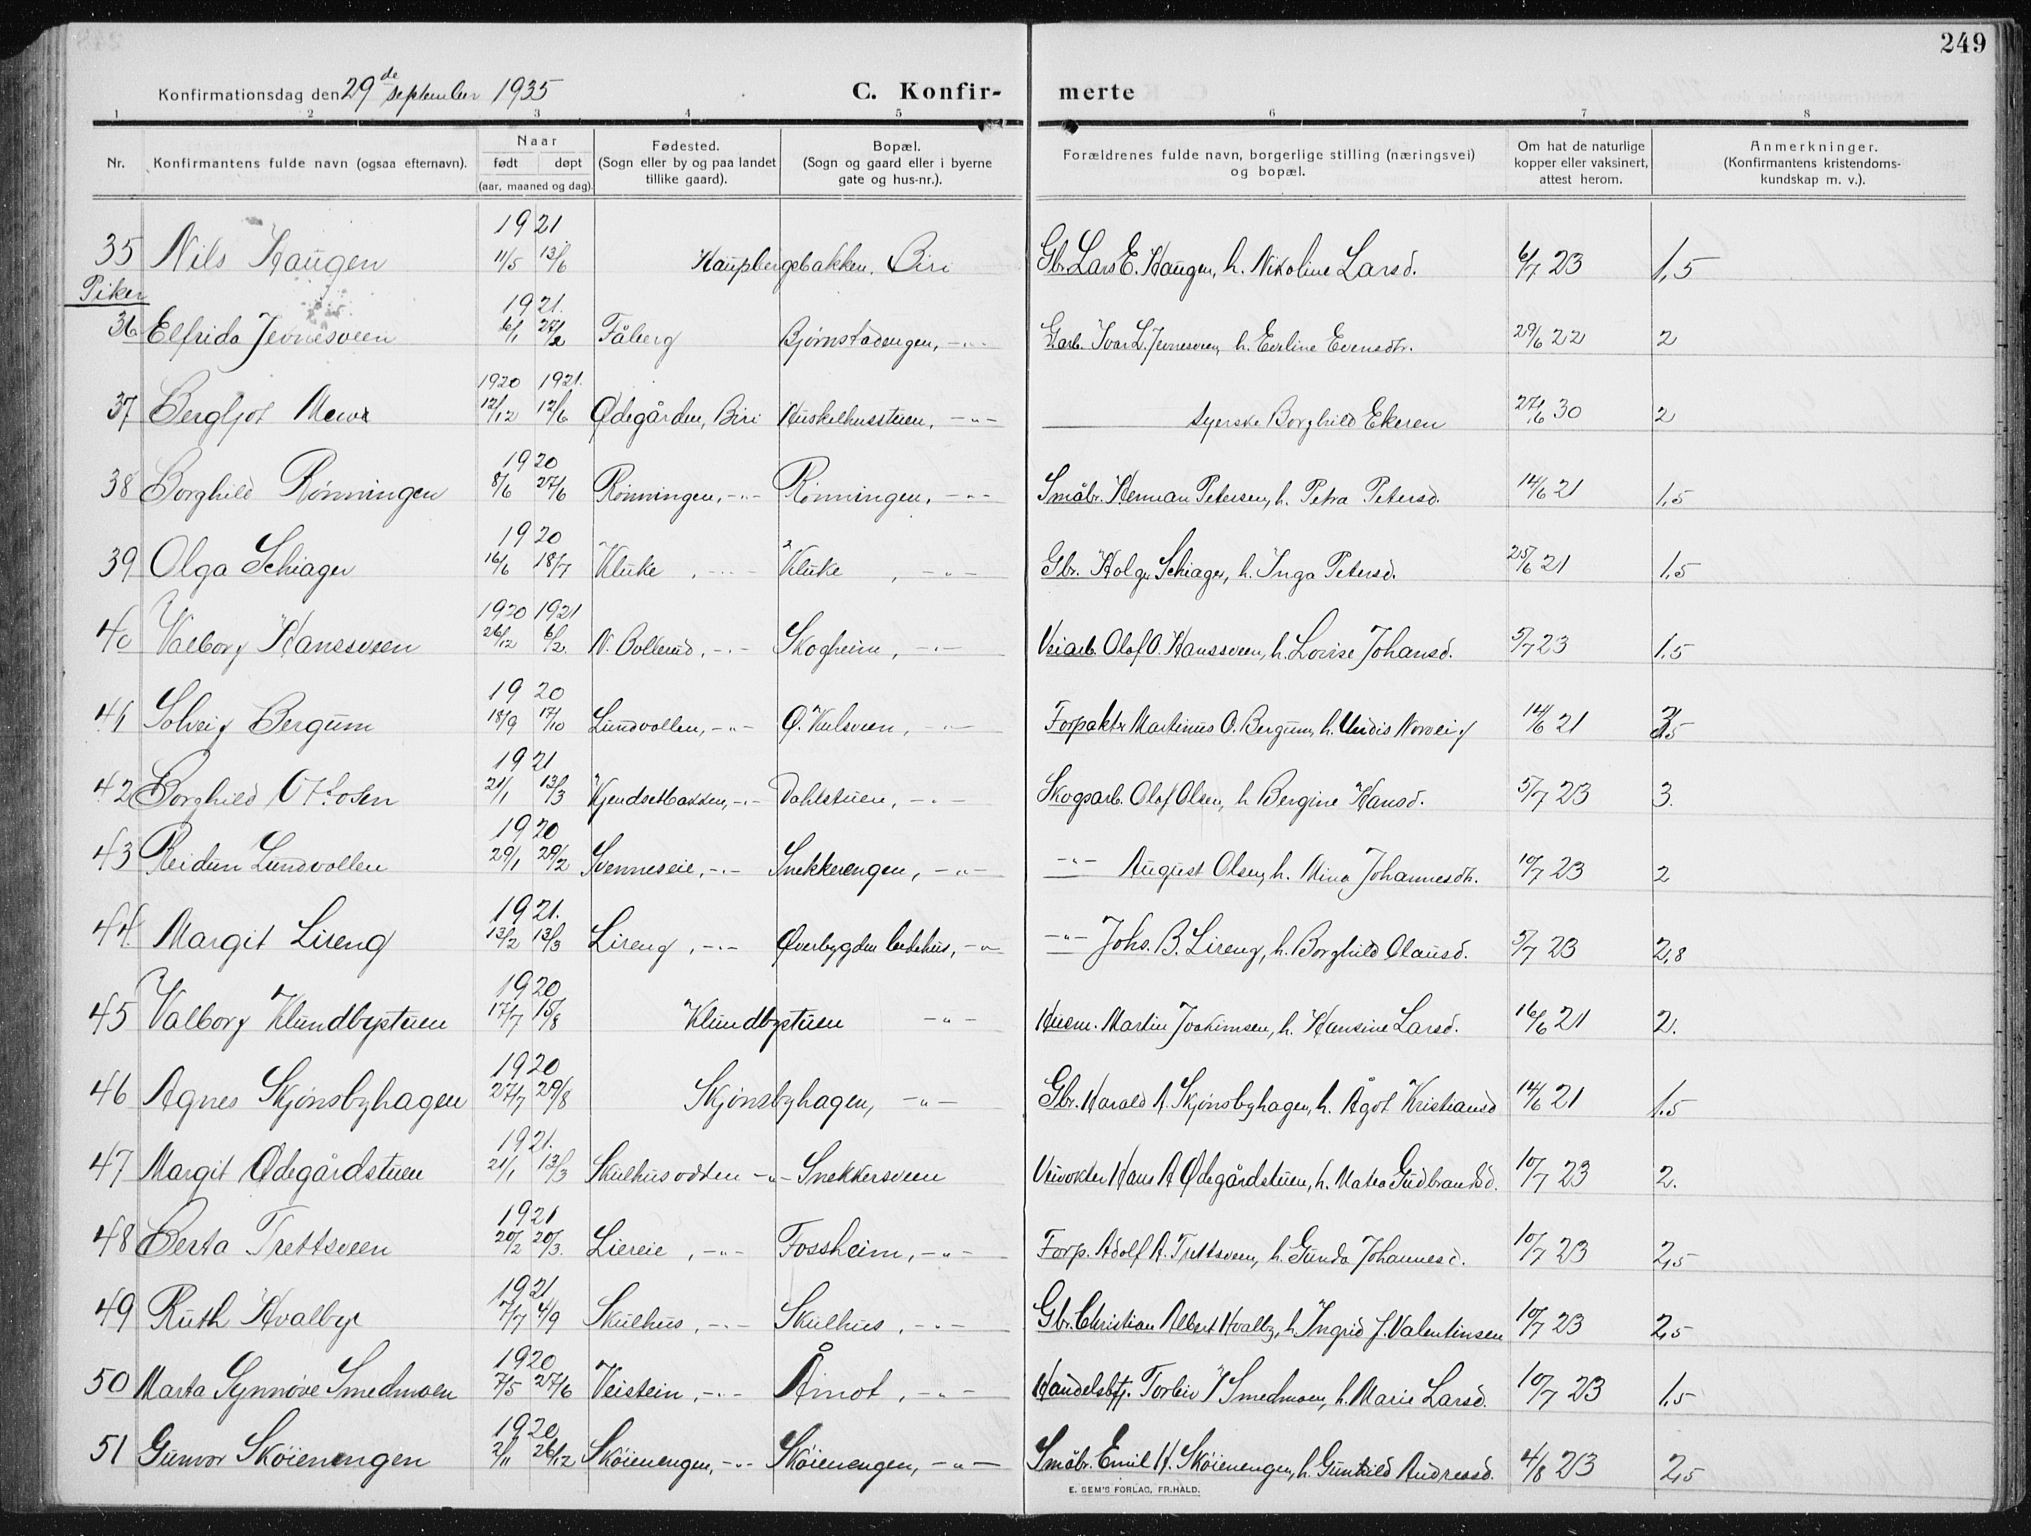 249
Konfirmationsdag den 29de september 1935 C. Konfir- merte
1 2 3 4 5 6 7 8
Nr. Konfirmantens fulde navn (ogsaa efternavn). Naar født døpt (aar, maaned og dag). Fødested. (Sogn eller by og paa landet tillike gaard). Bopæl. (Sogn og gaard eller i byerne gate og hus-nr.). Forældrenes fulde navn, borgerlige stilling (næringsvei) og bopæl. Om hat de naturlige kopper eller vaksinert, attest herom. Anmerkninger. (Konfirmantens kristendoms- kundskap m. v.).
1921
35 Nils Haugen 11/5 13/6 Haupbergsbakken, Biri Gbr. Lars E. Haugen, h. Nikoline Larsd. 6/7 23 1,5
Piker
1921.
36 Elfrida Jevnesveen 6/1 27/2 Fåberg Bjørnstadengen, -"- Garb. Ivar L. Jevnesveen, h. Eveline Evensdtr. 29/6 22 2
1920 1921.
37 Bergljot 12/12 12/6 Ødegården, Biri Huskelhusstuen, -"- syerske Borghild Ekeren 27/6 30 2
1920
38 Borghild Rønningen 8/6 27/6 Rønningen, -"- Rønningen, -"- Småbr. Herman Petersen, h. Petra Petersd. 14/6 21 1,5
1920
39 Olga Schiager 16/6 18/7 Kluke, -"- Kluke, -"- Gbr. Holger Schiager, h. Inga Petersd. 25/6 21 1,5
1920 1921
40 Valborg Hanssveen 26/12 6/2 N. Bollerud, -"- Skogheim, -"- Veiarb. Olof O. Hanssveen, h. Lovise Johansd. 5/7 23 1,5
1920
41 Solveig Bergum 18/9 17/10 Lundvollen, -"- Ø. Kulsveen, -"- Forpakter Martinus O. Bergum, h. Undis Norveig 14/6 21
1921
42 Borghild Ottosen 21/1 13/3 Kjendsetbakken, -"- Dahlstuen, -"- Skogsarb. Olof Olsen, h. Bergine Hansd. 5/7 23 3.
1920
43 Reidun Lundvollen 29/1 29/2 Svenneseie, -"- Snekkerengen, -"- -"- August Olsen, h. Mina Johannesdtr. 10/7 23 2
1921.
44. Margit Lireng 13/2 13/3 Lireng, -"- Øverbygden bedehus, -"- -"- Johs. B. Lireng, h. Borghild Olausd. 5/7 23 2,8
1920
45 Valborg Klundbystuen 17/7 15/8 Klundbystuen -"- Husm. Martin Joakimsen, h. Hansine Larsd. 16/6 21 2.
1920
46 Agnes Skjønsbyhagen 27/7 29/8 Skjønsbyhagen, -"- Gbr. Harald A. Skjønsbyhagen, h. Ågot Kristiansd 14/6 21 1.5
1921.
47 Margit Ødegårdstuen 21/1 13/3 Skulhusodden -"- Snekkersveen Veivokter Hans A Ødegårdstuen, h. Matea Gudbrandsd. 10/7 23 2.
1921
48 Berta Trettsveen 20/2 20/3. Liereie, -"- Fossheim, -"- Forp. Adolf A. Trettsveen, h. Gunda Johannesd. 10/7 23 2,5
1921
49 Ruth Hvalby 7/7 4/9 Skulhus, -"- Skulhus, -"- Gbr. Christian Albert Hvalby, h. Ingrid J. Valentinsen 10/7 23 2,5
1920
50 Marta Synnøve Smedmoen 7/5 27/6 Veistein, -"- Åmot, -"- Handelsbtj. Torleiv Smedmoen, h. Marie Larsd. 10/7 23 1,5
1920
51 Gunvor Skøienengen 2/11 26/12 Skøienengen, -"- Skøienengen, -"- Småbr. Emil H. Skøienengen, h. Gunhild Andreasd. 4/8 23 2,5
E. SEM'S FORLAG, FR.HALD.